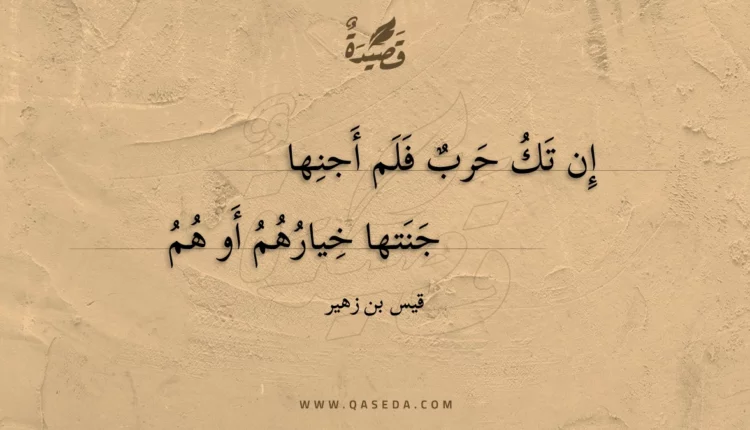 قَصِيدَةٌ
إِن تَكُ حَربٌ فَلَم أَجنِها
جَنَتها خِيارُهُمُ أَو هُمُ
قيس بن زهير
WWW.QASEDA.COM